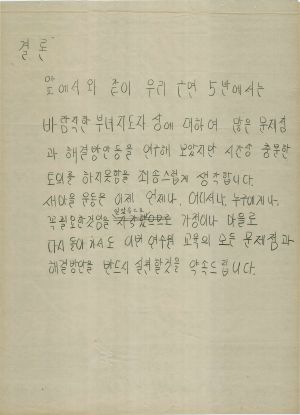 결론
앞에서와 같이 우리 7번 5반에서는
바람직한 부녀지도자 상에 대하여 많은 문제점
과 해결방안등을 연구해 보았지만 시간상 충분한
토의를 하지못함을 죄송스럽게 생각합니다.
새마을 운동은 이제 언제나, 어디서나, 누구에게나,
꼭필요한것임을 가정이나 마을로
다시 돌아가서도 이번 연수원 교육의 모든 문제점과
해결방안을 반드시 실천할것을 약속드립니다.